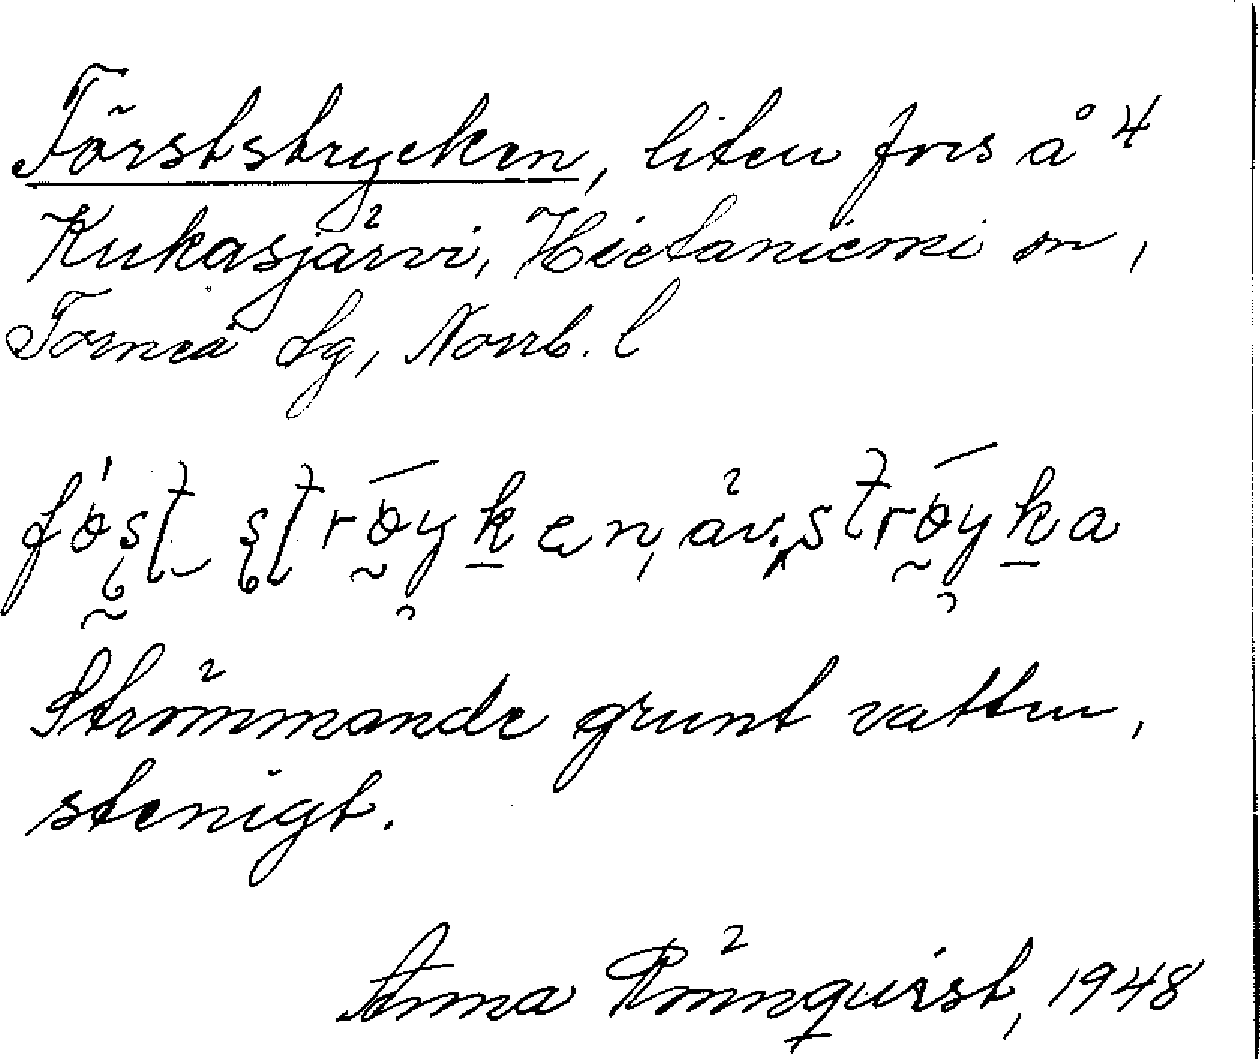 Förststrycken, liten fors å 4
Kukasjärvi, Hietaniemi sn,
Torneå tg, Norrb. l
föst ströyken, äv. ströyka
Strömmande grunt vatten,
stenigt.
Anna Rönnquist, 1948